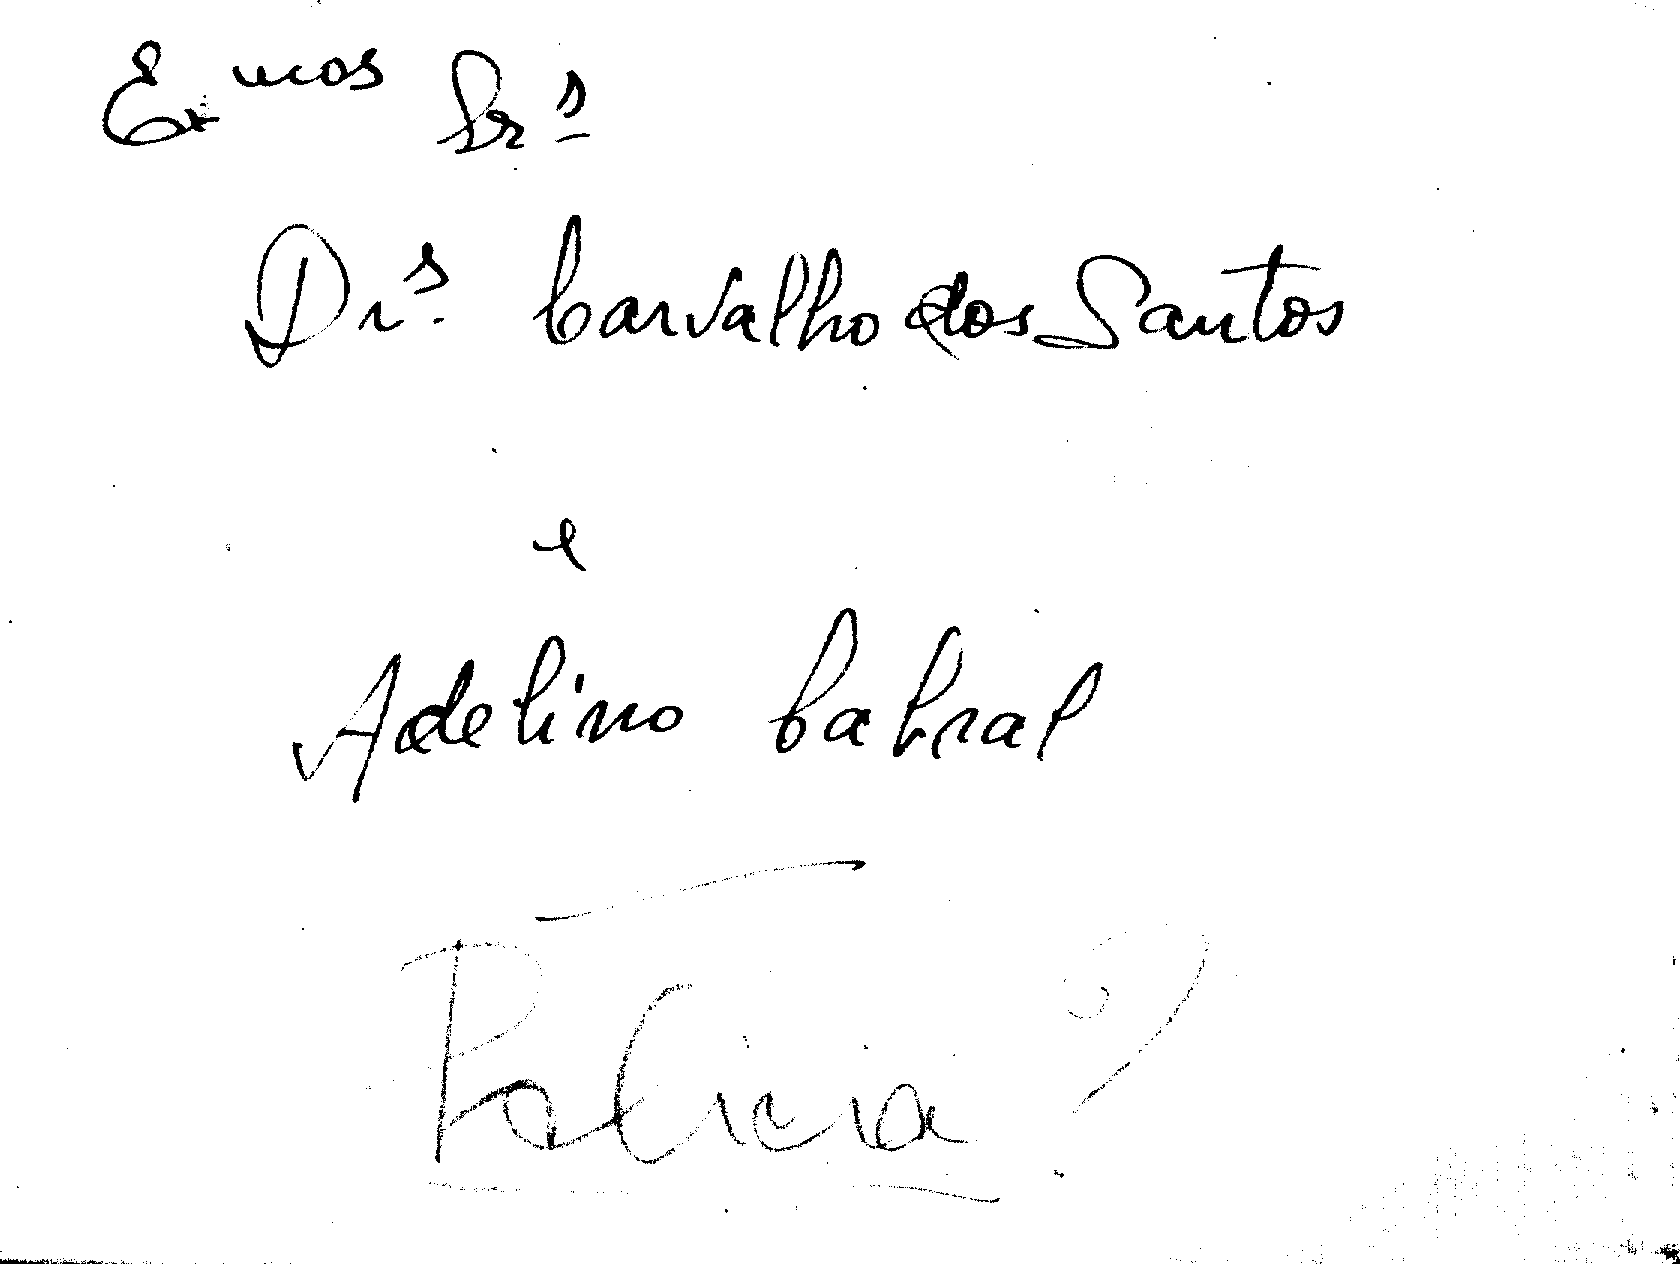 Exmos Srs
Drs. Carvalho dos Santos
e
Adelino Cabral
Polícia ?